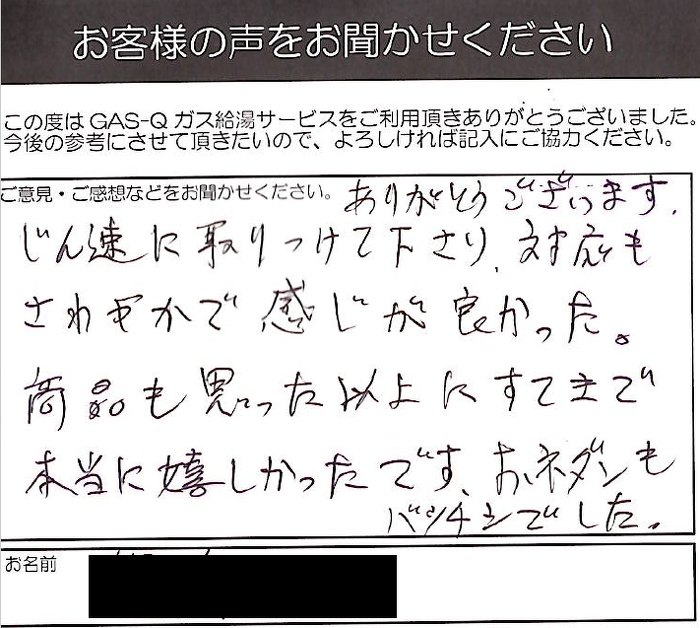 お客様の声をお聞かせください
この度は GAS-Q ガス給湯サービスをご利用頂きありがとうございました。
今後の参考にさせて頂きたいので、よろしければ記入にご協力ください。
ご意見・ご感想などをお聞かせください。
ありがとうございます.
じん速に取りつけて下さり、対応も
さわやかで感じが良かった。
商品も思った以上にすてきで
本当に嬉しかったです、おネダンも
バッチシでした。
お名前